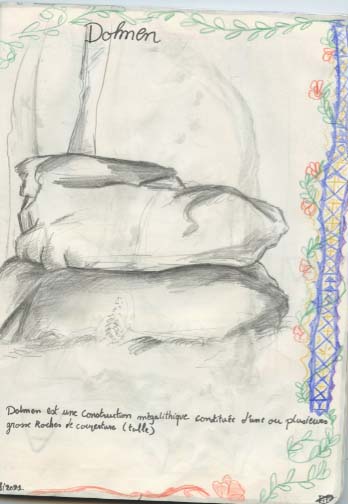 Dolmen
Dolmen est une construction mégalithique constituée d'une ou plusieurs
grosse Roches de couverture (talle)